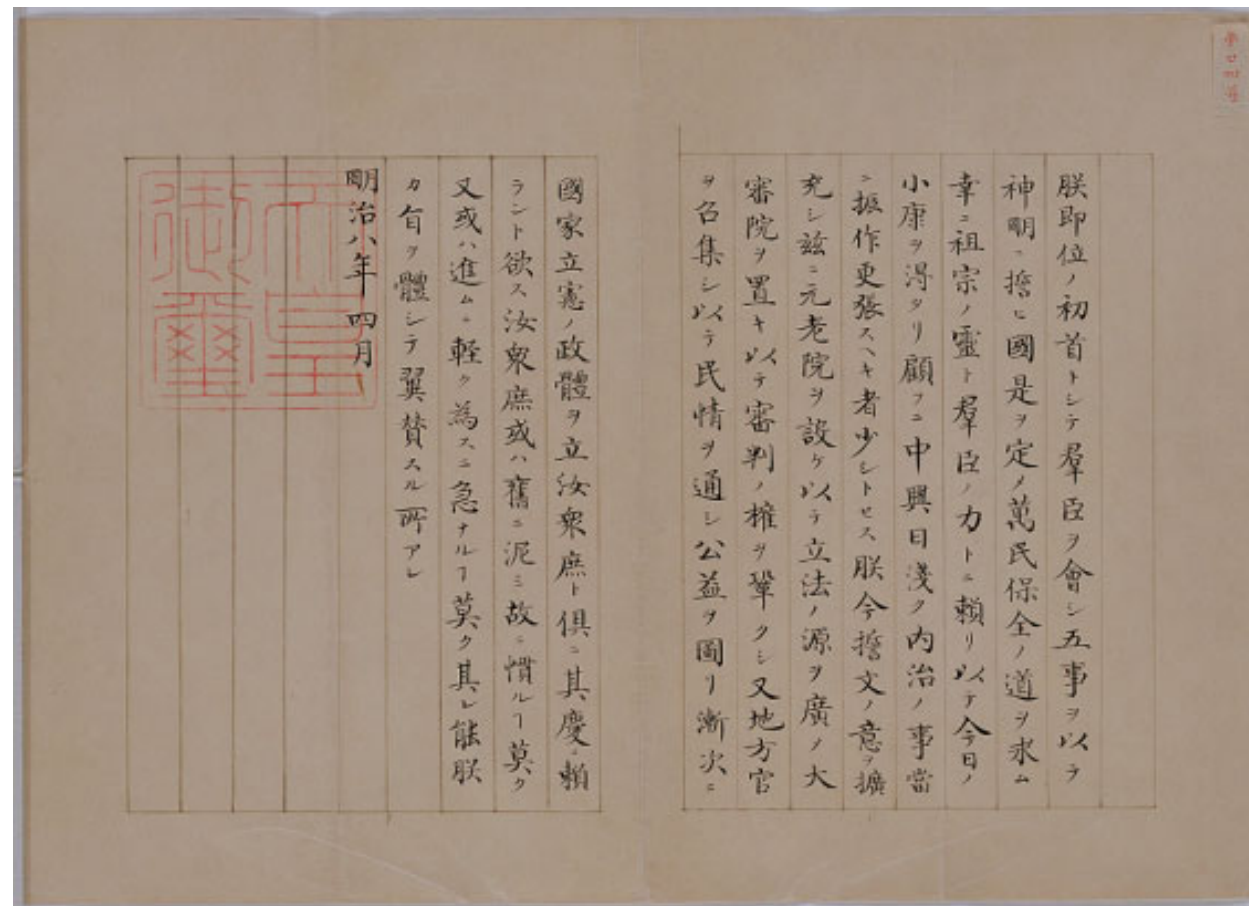 朕即位ノ初首トシテ羣臣ヲ會シ五事ヲ以テ
神明ニ誓ヒ國是ヲ定メ萬民保全ノ道ヲ求ム
幸ニ祖宗ノ靈ト羣臣ノ力トニ賴リ以テ今日ノ
小康ヲ得タリ顧フニ中興日淺ク内治ノ事當
ニ振作更張スヘキ者少シトセス朕今誓文ノ意ヲ擴
充シ玆ニ元老院ヲ設ケ以テ立法ノ源ヲ廣メ大
審院ヲ置キ以テ審判ノ權ヲ鞏クシ又地方官
ヲ召集シ以テ民情ヲ通シ公益ヲ圖リ漸次ニ
國家立憲ノ政體ヲ立汝衆庶ト俱ニ其慶ニ賴
ラント欲ス汝衆庶或ハ舊ニ泥ミ故ニ慣ルヿ莫ク
又或ハ進ムニ輕ク為スニ急ナルヿ莫ク其レ能朕
カ旨ヲ體シテ翼贊スル所アレ
明治八年四月
天皇
御璽